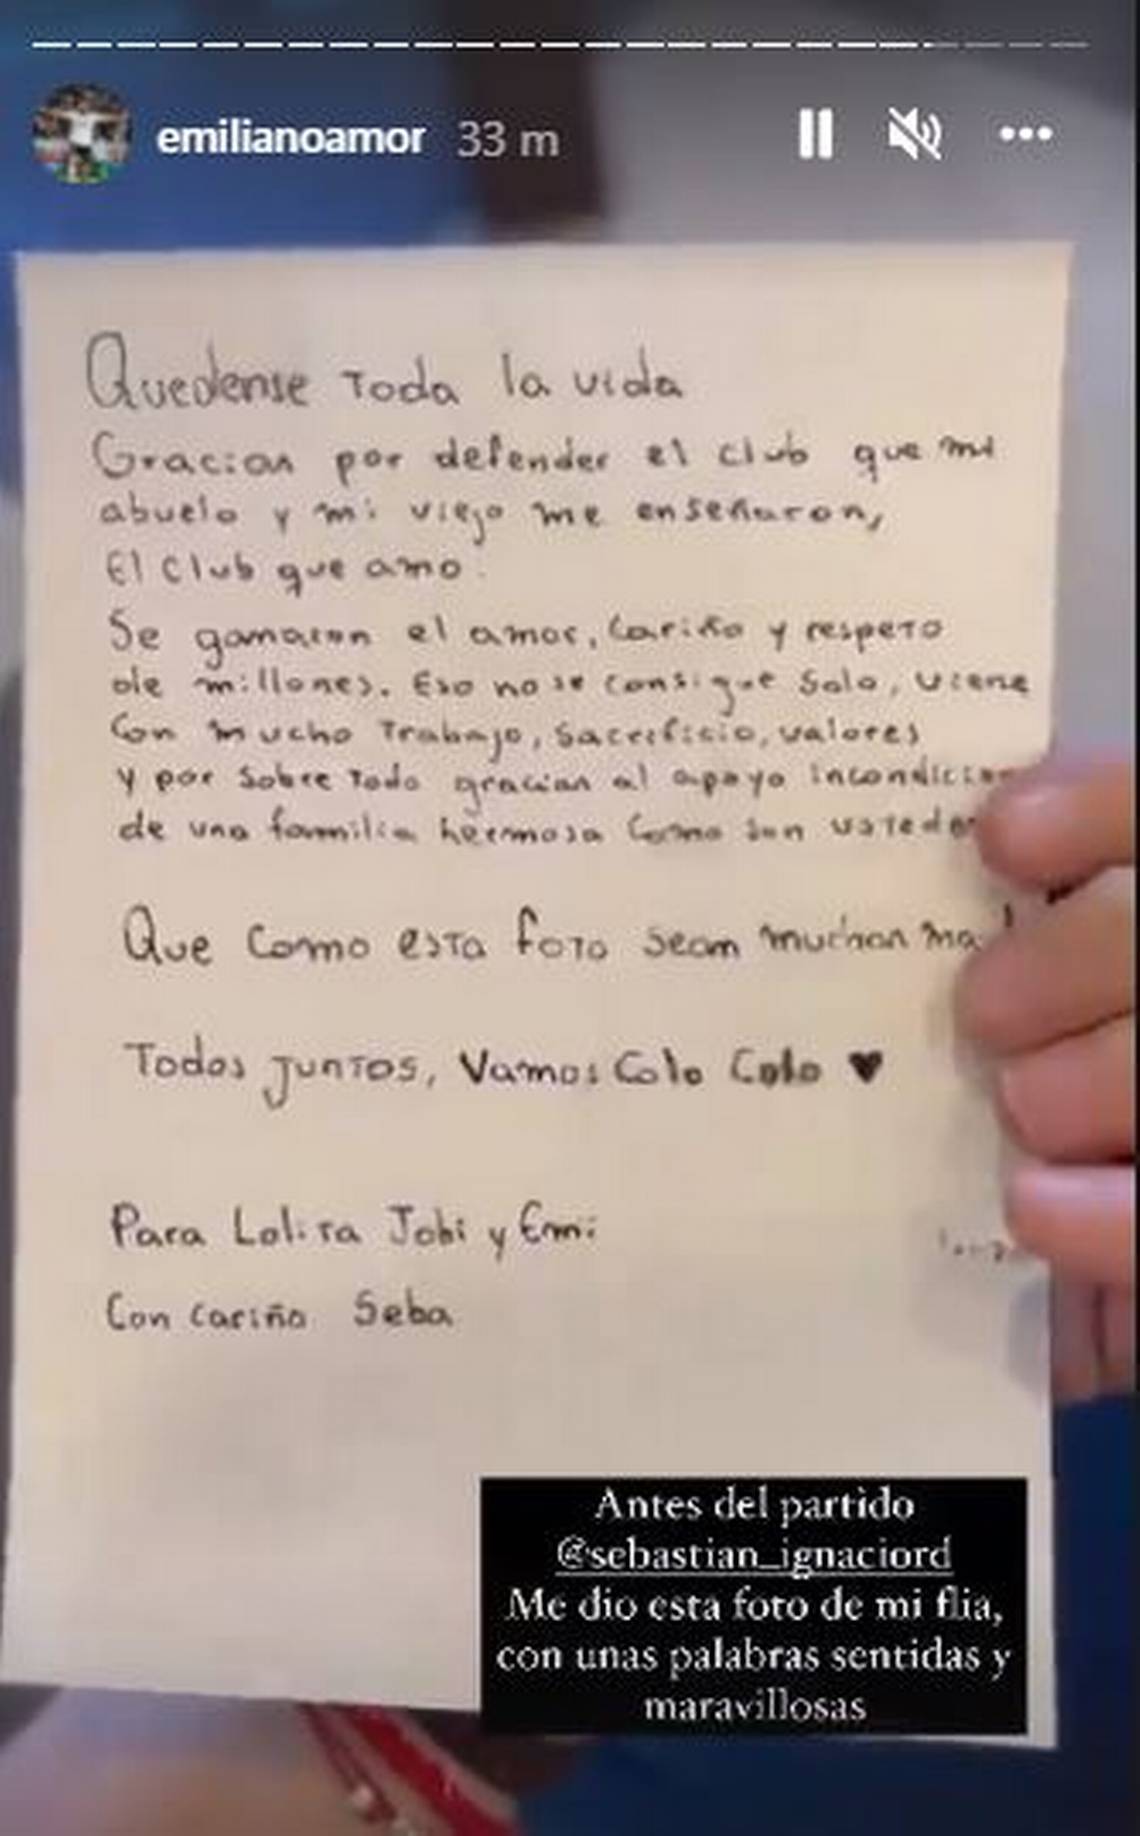 emilianoamor 33 m
Quedense toda la vida
Gracias por defender el club que mi
abuelo y mi viejo me enseñaron,
El club que amo.
Se ganaron el amor, cariño y respeto
de millones. Eso no se consigue solo, viene
con mucho trabajo, sacrificio, valores
y por sobre todo gracias al apoyo incondicion
de una familia hermosa como son ustedes
Que como esta foto sean muchas ma
Todos juntos, Vamos Colo Colo ♥
Para Lolita Jobi y Emi
Con cariño Seba
Antes del partido
@sebastian_ignaciord
Me dio esta foto de mi flia,
con unas palabras sentidas y
maravillosas